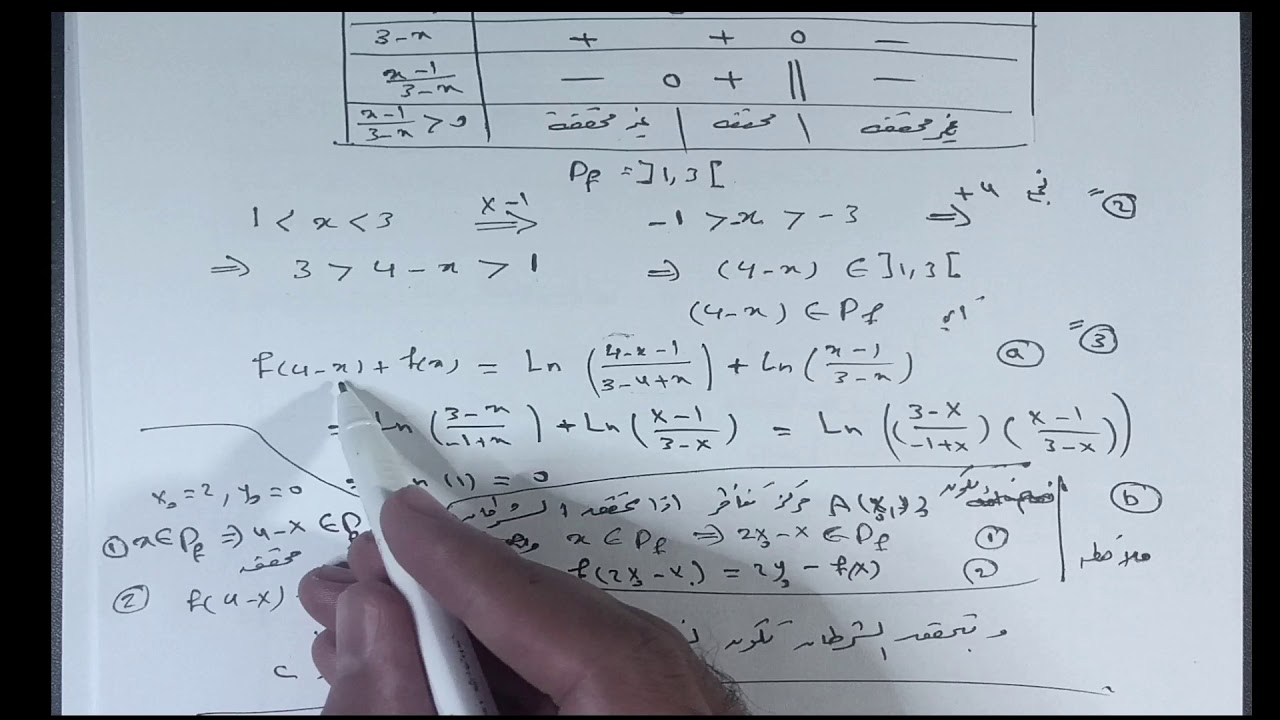 3-x + + 0 -
(x-1)/(3-x) - 0 + || -
(x-1)/(3-x) > 0 غير محققة | محققة | غير محققة
Df = ]1,3[
② = +4 ⇒ -1 > -x > -3 ⇒ (×-1) 1 < x < 3
⇒ 3 > 4-x > 1 ⇒ (4-x) ∈ ]1,3[
أي (4-x) ∈ Df
③ =
ⓐ f(4-x) + f(x) = Ln((4-x-1)/(3-4+x)) + Ln((x-1)/(3-x))
= Ln((3-x)/(-1+x)) + Ln((x-1)/(3-x)) = Ln(((3-x)/(-1+x))((x-1)/(3-x)))
(1) = 0
ⓑ
ملاحظة
A(x₀,y₀) مركز تناظر اذا تحقق الشرطان
① x ∈ Df ⇒ 2x₀-x ∈ Df
② f(2x₀-x) = 2y₀ - f(x)
x₀=2, y₀=0
① x∈Df ⇒ 4-x ∈ Df
محققة
② f(4-x)
و بتحقق الشرطان تكون
C